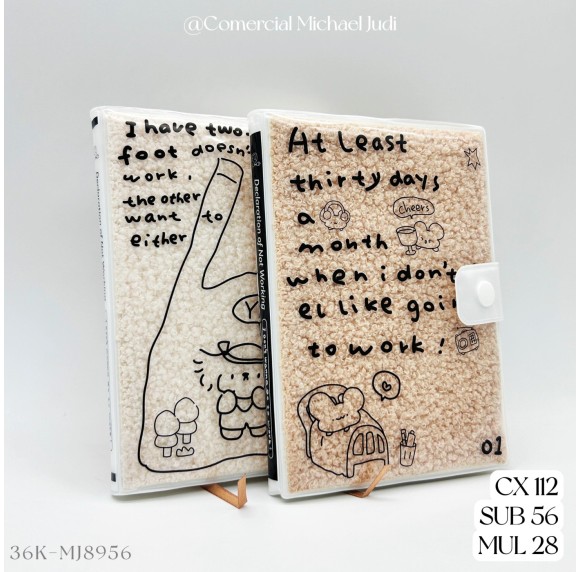 @Comercial Michael Judi
I have two.
foot doesn't
work,
the other
want to
either
Declaration of Not Working
At least
thirty days
a
cheers
month
when i don't
el like goi
to work!
01
Declaration of Not Working
CX 112
SUB 56
MUL 28
36K-MJ8956